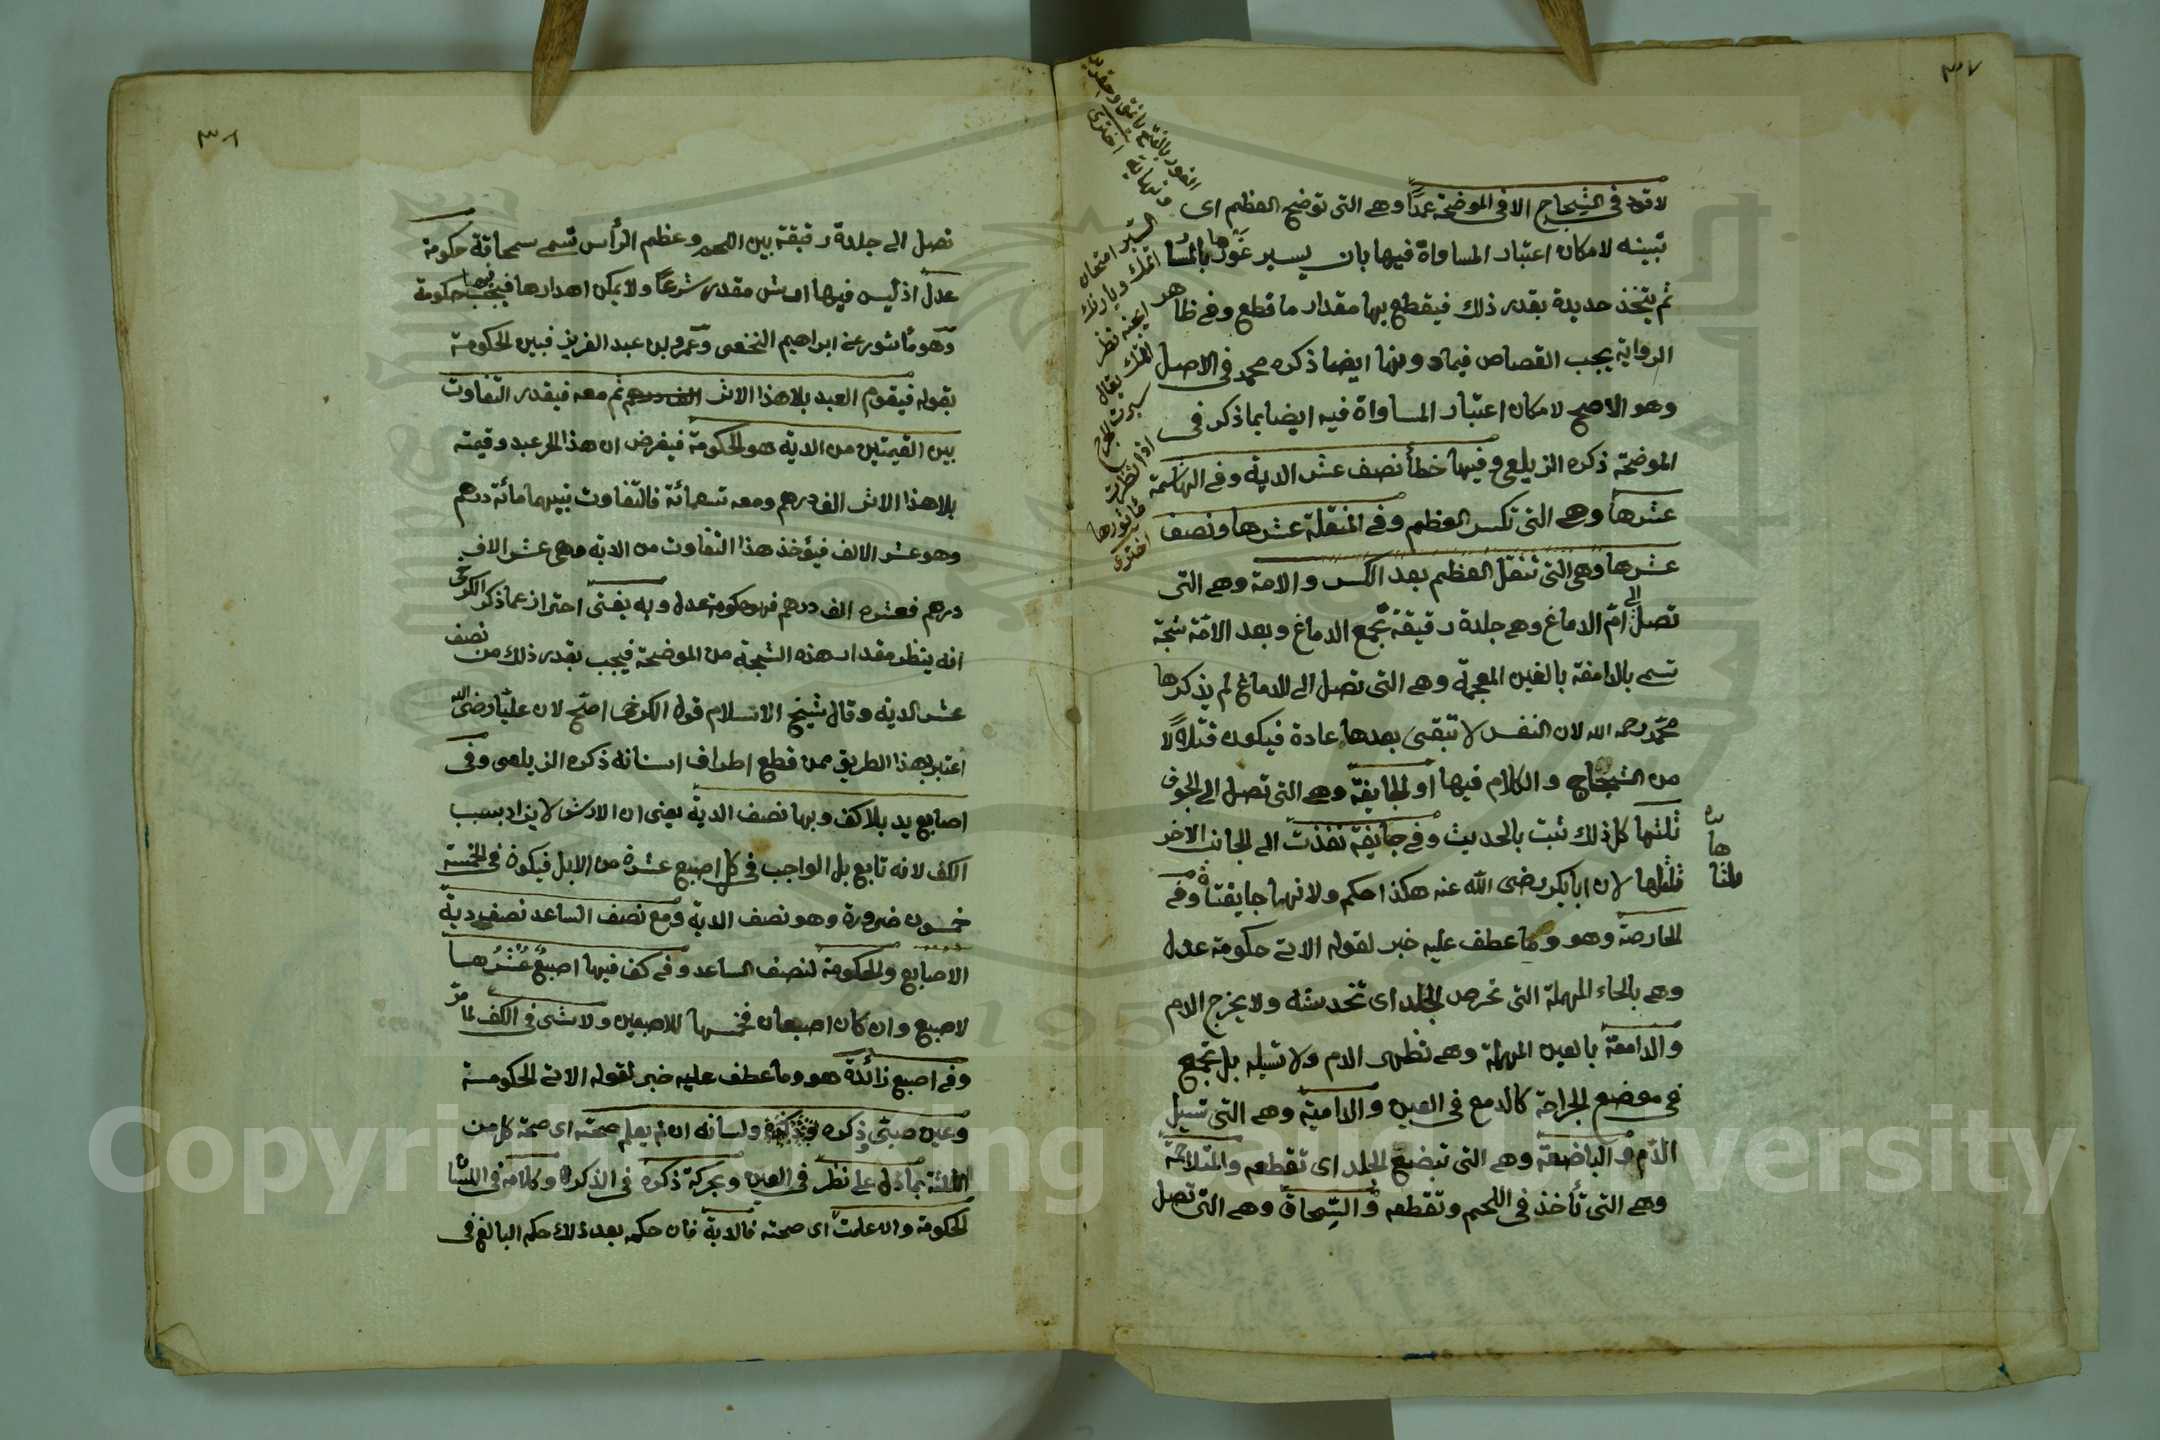 ٣٧
لا قود في الشجاج الا في الموضحة عمدًا وهي التي توضح العظم اى
تبينه لامكان اعتبار المساواة فيها بان يسبر غورها بالمسبار
ثم يتخذ حديدة بقدر ذلك فيقطع بها مقدار ما قطع وفي ظاهر
الرواية يجب القصاص فيما دونها ايضا ذكره محمد في الاصل
وهو الاصح لامكان اعتبار المساواة فيه ايضا بما ذكر في
الموضحة ذكره الزيلعي وفيها خطأ نصف عشر الدية وفي الهاشمة
عشرها وهي التي تكسر العظم وفي المنقلة عشرها ونصف
عشرها وهي التي تنقل العظم بعد الكسر والامة وهي التي
تصل الى امّ الدماغ وهي جلدة رقيقة تجمع الدماغ وبعد الامّة شجة
تسمى بالدامغة بالغين المعجمة وهي التي تصل الى الدماغ لم يذكرها
محمّد رحمه الله لان النفس لا تبقى بعدها عادة فيكون قتلاً لا
من الشجاج والكلام فيها او الجايفة وهي التي تصل الى الجوف
ثلثها كل ذلك ثبت بالحديث وفي جايفة نفذت الى الجانب الاخر
ثلثاها لان ابا بكر رضى الله عنه هكذا حكم ولانها جايفتان وفي
الحارصة وهو وما عطف عليه خبر لقوله الاتي حكومة عدل
وهي بالحاء المهملة التي تحرص الجلد اى تخدشه ولا يخرج الدم
والدامعة بالعين المهملة وهي تظهر الدم ولا تسيله بل تجمع
في موضع الجراحة كالدمع في العين والدامية وهي التي تسيل
الدّم والباضعة وهي التي تبضع الجلد اى تقطعه والمتلاحمة
وهي التي تأخذ في اللحم وتقطعه والسّمحاق وهي التي تصل
٣٨
تصل الى جلدة رقيقة بين اللحم وعظم الرأس تسمى سمحاقة حكومة
عدل اذ ليس فيها ارش مقدر شرعًا ولا يمكن اهدارها فيجب فيها حكومة
وهو مأثور عن ابراهيم النخعى وعمر بن عبد العزيز فبين الحكومة
بقوله فيقوم العبد بلا هذا الاثر ثم معه فيقدر التّفاوت
بين القيمتين من الدية هو الحكومة فيفرض ان هذا الحر عبد وقيمته
بلا هذا الاثر الف درهم ومعه تسعمائة فالتّفاوت بينهما مائة درهم
وهو عشر الالف فيؤخذ هذا التفاوت من الدية وهي عشر الاف
درهم فعشره الف درهم فهو حكومة عدل وبه يفتى احتراز عما ذكر الكرخى
انه ينظر مقدار هذه الشجة من الموضحة فيجب بقدر ذلك من نصف
عشر الدية وقال شيخ الاسلام قول الكرخى اصحّ لان عليّا رضى الله
اعتبر بهذا الطريق ممن قطع اطراف لسانه ذكره الزيلعى وفى
اصابع يد بلا كف وبها نصف الدية يعنى ان الارش لا يزاد بسبب
الكف لانه تابع بل الواجب فى كل اصبع عشرة من الابل فيكون فى الخمسة
خمسون ضرورة وهو نصف الدية ومع نصف الساعد نصف دية
الاصابع والحكومة لنصف الساعد وفى كف فيها اصبع عُشْرُها
لاصبع وان كان اصبعان فخمسها للاصبعين ولا شىء فى الكف لما مرّ
وفى اصبع زائدة هو وما عطف عليه خبر لقوله الاتى الحكومة
وعين صبىّ وذكره ولسانه ان لم يعلم صحته اى صحة كل من
الثلاثة بما دل على نظر فى العين وحركة ذكره فى الذكر وكلامه فى اللسان
الحكومة وان علمت اى صحته فالدية فان حكمه بعد ذلك حكم البالغ فى